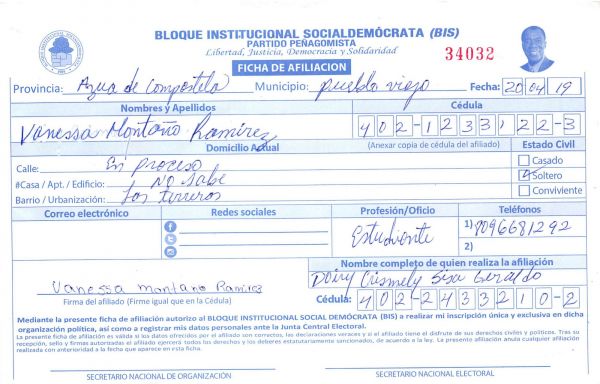 BLOQUE INSTITUCIONAL SOCIALDEMÓCRATA (BIS)
PARTIDO PEÑAGOMISTA
Libertad, Justicia, Democracia y Solidaridad
34032
FICHA DE AFILIACION
Provincia: Azua de Compostela Municipio: pueblo viejo Fecha: 20 04 19
Nombres y Apellidos Cédula
Vanessa Montaño Ramirez 402-1233122-3
Domicilio Actual (Anexar copia de cédula del afiliado) Estado Civil
Calle: En proceso Casado
#Casa / Apt. / Edificio: No sabe Soltero
Barrio / Urbanización: Los terreros Conviviente
Correo electrónico Redes sociales Profesión/Oficio Teléfonos
Estudiente 1) 8096681292
2)
Nombre completo de quien realiza la afiliación
Vanessa montano Ramirez Doiry Crismely Sisa Geraldo
Firma del afiliado (Firme igual que en la Cédula) Cédula: 402-2433210-2
Mediante la presente ficha de afiliación autorizo al BLOQUE INSTITUCIONAL SOCIAL DEMÓCRATA (BIS) a realizar mi inscripción única y exclusiva en dicha
organización política, así como a registrar mis datos personales ante la Junta Central Electoral.
La presente ficha de afiliación es valida si los datos ofrecidos por el afiliado son correctos, las declaraciones veraces y si el afiliado tiene el disfrute de sus derechos civiles y políticos. Tras su
recepción, sello y firmas autorizadas el afiliado ejercerá todos los derechos y los deberes estatutariamente sancionados, de acuerdo a la ley. La presente afiliación anula cualquier afiliación
realizada con anterioridad a la fecha que aparece en esta ficha.
SECRETARIO NACIONAL DE ORGANIZACIÓN SECRETARIO NACIONAL ELECTORAL